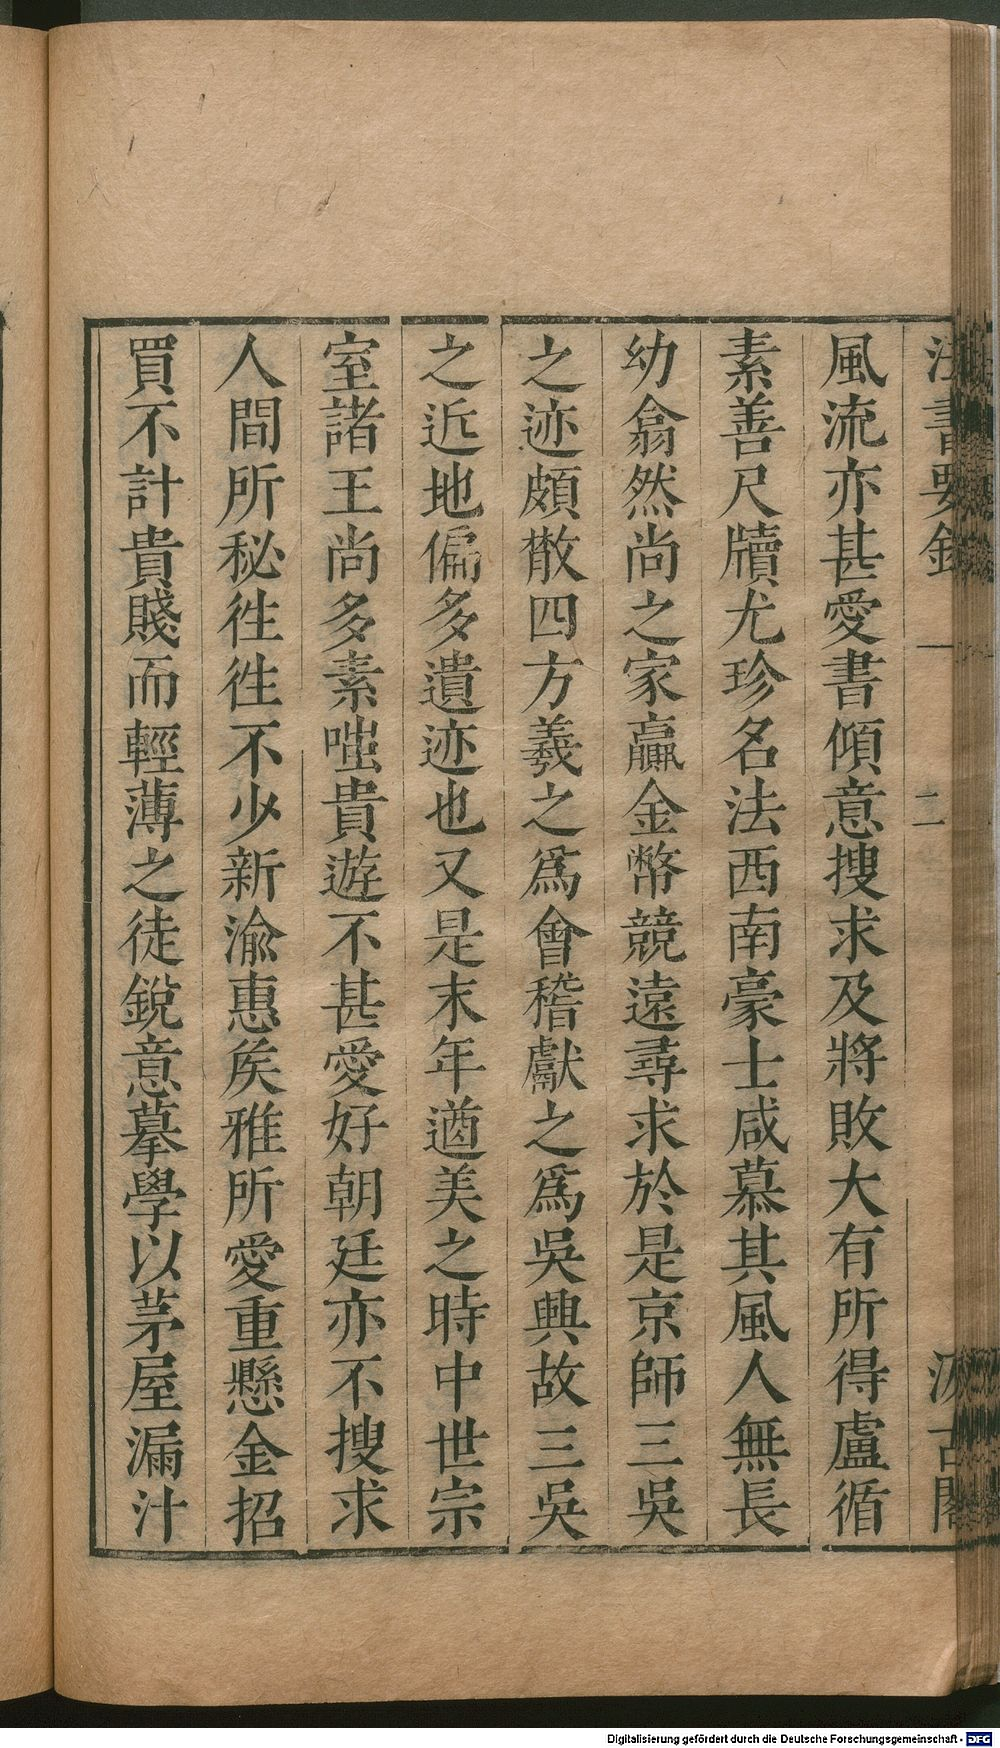 法書要錄 一 二 汲古閣
風流亦甚愛書傾意搜求及將敗大有所得盧循
素善尺牘尤珍名法西南豪士咸慕其風人無長
幼翕然尚之家贏金幣競遠尋求於是京師三吳
之迹頗散四方羲之為會稽獻之為吳興故三吳
之近地偏多遺迹也又是末年遒美之時中世宗
室諸王尚多素嗤貴遊不甚愛好朝廷亦不搜求
人間所秘徃徃不少新渝惠矦雅所愛重懸金招
買不計貴賤而輕薄之徒銳意摹學以茅屋漏汁
Digitalisierung gefördert durch die Deutsche Forschungsgemeinschaft - DFG